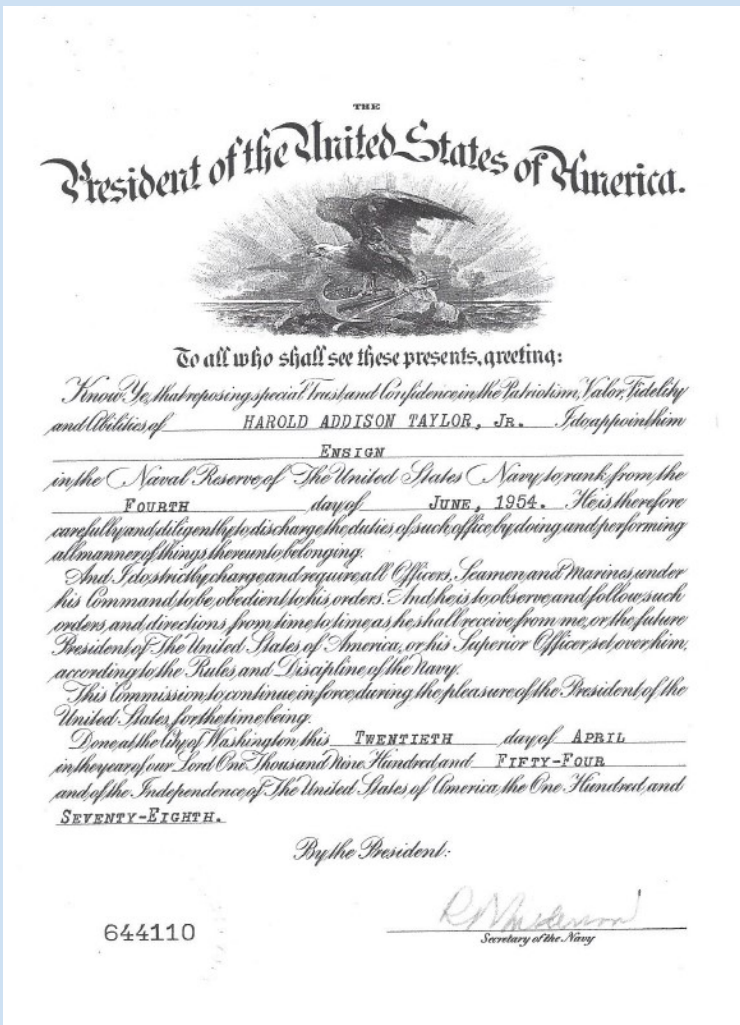 THE
President of the United States of America.
To all who shall see these presents, greeting:
Know Ye, that reposing special Trust and Confidence in the Patriotism, Valor, Fidelity
and Abilities of HAROLD ADDISON TAYLOR, JR. I do appoint him
ENSIGN
in the Naval Reserve of The United States Navy to rank from the
FOURTH day of JUNE, 1954. He is therefore
carefully and diligently to discharge the duties of such office by doing and performing
all manner of things thereunto belonging.
And I do strictly charge and require all Officers, Seamen and Marines under
his Command to be obedient to his orders. And he is to observe and follow such
orders and directions from time to time as he shall receive from me, or the future
President of The United States of America, or his Superior Officer set over him,
according to the Rules and Discipline of the Navy.
This Commission to continue in force during the pleasure of the President of the
United States for the time being.
Done at the City of Washington this TWENTIETH day of APRIL
in the year of our Lord One Thousand Nine Hundred and FIFTY-FOUR
and of the Independence of The United States of America the One Hundred and
SEVENTY-EIGHTH.
By the President:
R B Anderson
Secretary of the Navy
644110